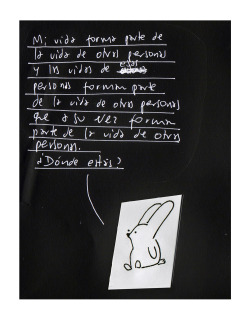 Mi vida forma parte de
la vida de otras personas
y las vidas de esas
personas forman parte
de la vida de otras personas
que a su vez forman
parte de la vida de otras
personas.
¿Dónde estás?